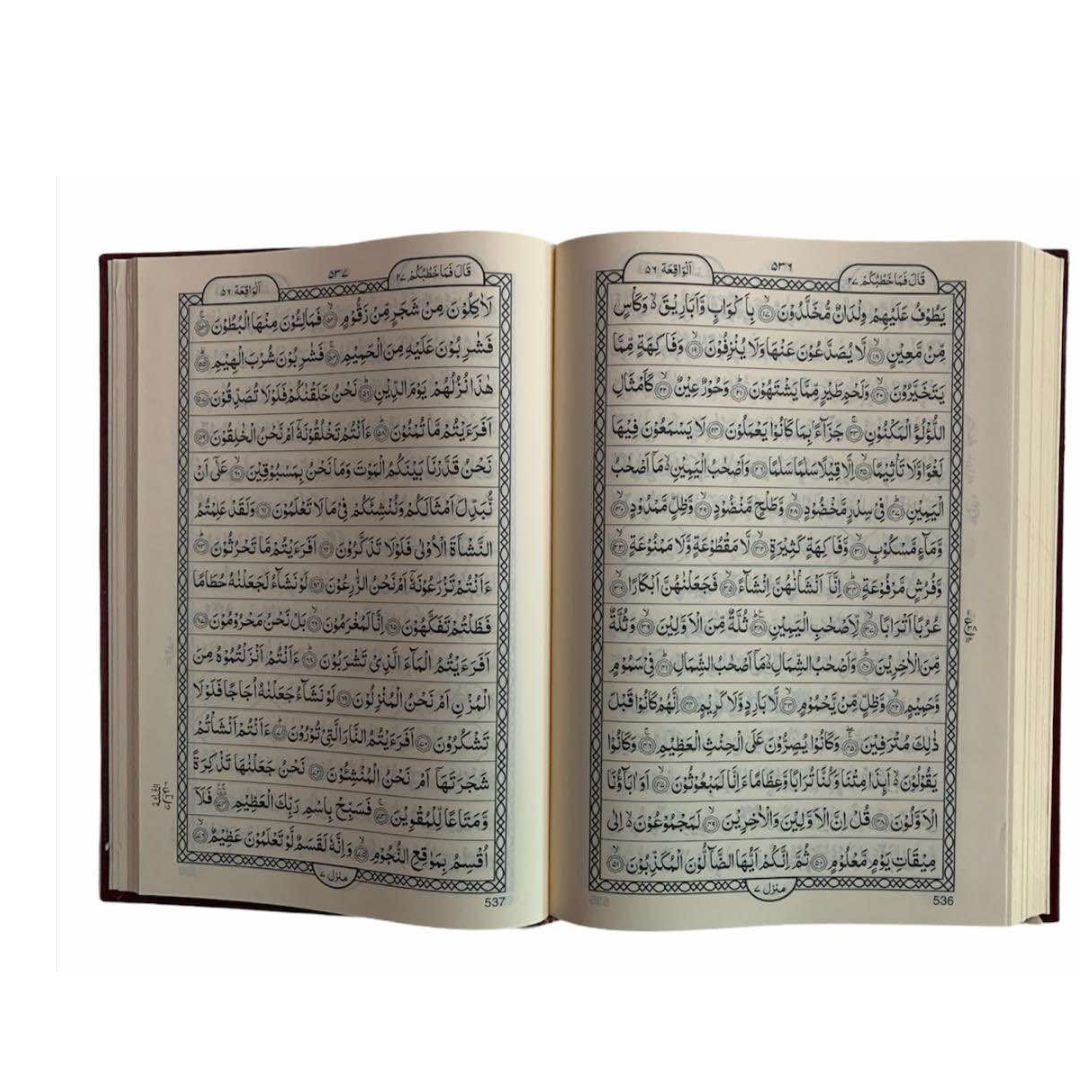 اَلْوَاقِعَة ٥٦
٥٣٦
قَالَ فَمَا خَطْبُكُمْ ٢٧
يَطُوْفُ عَلَيْهِمْ وِلْدَانٌ مُّخَلَّدُوْنَ ۙ﴿١٧﴾ بِاَكْوَابٍ وَّاَبَارِيْقَ ۙ وَكَاْسٍ
مِّنْ مَّعِيْنٍ ۙ﴿١٨﴾ لَّا يُصَدَّعُوْنَ عَنْهَا وَلَا يُنْزِفُوْنَ ۙ﴿١٩﴾ وَفَاكِهَةٍ مِّمَّا
يَتَخَيَّرُوْنَ ۙ﴿٢٠﴾ وَلَحْمِ طَيْرٍ مِّمَّا يَشْتَهُوْنَ ؕ﴿٢١﴾ وَحُوْرٌ عِيْنٌ ۙ﴿٢٢﴾ كَاَمْثَالِ
اللُّؤْلُؤِ الْمَكْنُوْنِ ۚ﴿٢٣﴾ جَزَآءًۢ بِمَا كَانُوْا يَعْمَلُوْنَ ﴿٢٤﴾ لَا يَسْمَعُوْنَ فِيْهَا
لَغْوًا وَّلَا تَاْثِيْمًا ۙ﴿٢٥﴾ اِلَّا قِيْلًا سَلٰمًا سَلٰمًا ﴿٢٦﴾ وَاَصْحٰبُ الْيَمِيْنِ ۙ مَاۤ اَصْحٰبُ
الْيَمِيْنِ ؕ﴿٢٧﴾ فِيْ سِدْرٍ مَّخْضُوْدٍ ۙ﴿٢٨﴾ وَّطَلْحٍ مَّنْضُوْدٍ ۙ﴿٢٩﴾ وَّظِلٍّ مَّمْدُوْدٍ ۙ﴿٣٠﴾
وَّمَآءٍ مَّسْكُوْبٍ ۙ﴿٣١﴾ وَّفَاكِهَةٍ كَثِيْرَةٍ ۙ﴿٣٢﴾ لَّا مَقْطُوْعَةٍ وَّلَا مَمْنُوْعَةٍ ۙ﴿٣٣﴾
وَّفُرُشٍ مَّرْفُوْعَةٍ ؕ﴿٣٤﴾ اِنَّاۤ اَنْشَاْنٰهُنَّ اِنْشَآءً ۙ﴿٣٥﴾ فَجَعَلْنٰهُنَّ اَبْكَارًا ۙ﴿٣٦﴾
عُرُبًا اَتْرَابًا ۙ﴿٣٧﴾ لِّاَصْحٰبِ الْيَمِيْنِ ؕ﴿٣٨﴾ ثُلَّةٌ مِّنَ الْاَوَّلِيْنَ ۙ﴿٣٩﴾ وَثُلَّةٌ
مِّنَ الْاٰخِرِيْنَ ؕ﴿٤٠﴾ وَاَصْحٰبُ الشِّمَالِ ۙ مَاۤ اَصْحٰبُ الشِّمَالِ ؕ﴿٤١﴾ فِيْ سَمُوْمٍ
وَّحَمِيْمٍ ۙ﴿٤٢﴾ وَّظِلٍّ مِّنْ يَّحْمُوْمٍ ۙ﴿٤٣﴾ لَّا بَارِدٍ وَّلَا كَرِيْمٍ ﴿٤٤﴾ اِنَّهُمْ كَانُوْا قَبْلَ
ذٰلِكَ مُتْرَفِيْنَ ۚ﴿٤٥﴾ وَكَانُوْا يُصِرُّوْنَ عَلَى الْحِنْثِ الْعَظِيْمِ ۚ﴿٤٦﴾ وَكَانُوْا
يَقُوْلُوْنَ ۙ اَئِذَا مِتْنَا وَكُنَّا تُرَابًا وَّعِظَامًا ءَاِنَّا لَمَبْعُوْثُوْنَ ۙ﴿٤٧﴾ اَوَ اٰبَآؤُنَا
الْاَوَّلُوْنَ ﴿٤٨﴾ قُلْ اِنَّ الْاَوَّلِيْنَ وَالْاٰخِرِيْنَ ۙ﴿٤٩﴾ لَمَجْمُوْعُوْنَ ۙ اِلٰى
مِيْقَاتِ يَوْمٍ مَّعْلُوْمٍ ﴿٥٠﴾ ثُمَّ اِنَّكُمْ اَيُّهَا الضَّآلُّوْنَ الْمُكَذِّبُوْنَ ۙ﴿٥١﴾
منزل ٧
536
اَلْوَاقِعَة ٥٦
٥٣٧
قَالَ فَمَا خَطْبُكُمْ ٢٧
لَاٰكِلُوْنَ مِنْ شَجَرٍ مِّنْ زَقُّوْمٍ ۙ﴿٥٢﴾ فَمَالِئُوْنَ مِنْهَا الْبُطُوْنَ ۚ﴿٥٣﴾
فَشٰرِبُوْنَ عَلَيْهِ مِنَ الْحَمِيْمِ ۚ﴿٥٤﴾ فَشٰرِبُوْنَ شُرْبَ الْهِيْمِ ؕ﴿٥٥﴾
هٰذَا نُزُلُهُمْ يَوْمَ الدِّيْنِ ؕ﴿٥٦﴾ نَحْنُ خَلَقْنٰكُمْ فَلَوْلَا تُصَدِّقُوْنَ ﴿٥٧﴾
اَفَرَءَيْتُمْ مَّا تُمْنُوْنَ ؕ﴿٥٨﴾ ءَاَنْتُمْ تَخْلُقُوْنَهٗۤ اَمْ نَحْنُ الْخٰلِقُوْنَ ﴿٥٩﴾
نَحْنُ قَدَّرْنَا بَيْنَكُمُ الْمَوْتَ وَمَا نَحْنُ بِمَسْبُوْقِيْنَ ۙ﴿٦٠﴾ عَلٰۤى اَنْ
نُّبَدِّلَ اَمْثَالَكُمْ وَنُنْشِئَكُمْ فِيْ مَا لَا تَعْلَمُوْنَ ﴿٦١﴾ وَلَقَدْ عَلِمْتُمُ
النَّشْاَةَ الْاُوْلٰى فَلَوْلَا تَذَكَّرُوْنَ ﴿٦٢﴾ اَفَرَءَيْتُمْ مَّا تَحْرُثُوْنَ ؕ﴿٦٣﴾
ءَاَنْتُمْ تَزْرَعُوْنَهٗۤ اَمْ نَحْنُ الزّٰرِعُوْنَ ﴿٦٤﴾ لَوْ نَشَآءُ لَجَعَلْنٰهُ حُطَامًا
فَظَلْتُمْ تَفَكَّهُوْنَ ﴿٦٥﴾ اِنَّا لَمُغْرَمُوْنَ ۙ﴿٦٦﴾ بَلْ نَحْنُ مَحْرُوْمُوْنَ ﴿٦٧﴾
اَفَرَءَيْتُمُ الْمَآءَ الَّذِيْ تَشْرَبُوْنَ ؕ﴿٦٨﴾ ءَاَنْتُمْ اَنْزَلْتُمُوْهُ مِنَ
الْمُزْنِ اَمْ نَحْنُ الْمُنْزِلُوْنَ ﴿٦٩﴾ لَوْ نَشَآءُ جَعَلْنٰهُ اُجَاجًا فَلَوْلَا
تَشْكُرُوْنَ ﴿٧٠﴾ اَفَرَءَيْتُمُ النَّارَ الَّتِيْ تُوْرُوْنَ ؕ﴿٧١﴾ ءَاَنْتُمْ اَنْشَاْتُمْ
شَجَرَتَهَاۤ اَمْ نَحْنُ الْمُنْشِئُوْنَ ﴿٧٢﴾ نَحْنُ جَعَلْنٰهَا تَذْكِرَةً
وَّمَتَاعًا لِّلْمُقْوِيْنَ ۚ﴿٧٣﴾ فَسَبِّحْ بِاسْمِ رَبِّكَ الْعَظِيْمِ ﴿٧٤﴾ فَلَاۤ
اُقْسِمُ بِمَوٰقِعِ النُّجُوْمِ ۙ﴿٧٥﴾ وَاِنَّهٗ لَقَسَمٌ لَّوْ تَعْلَمُوْنَ عَظِيْمٌ ۙ﴿٧٦﴾
منزل ٧
537